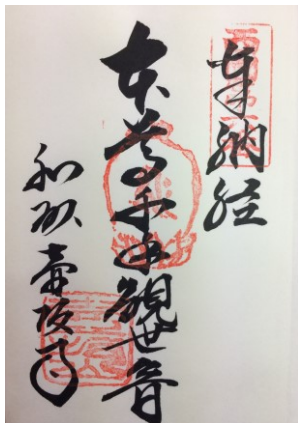 奉納経
本尊千手観世音
和州壷坂寺